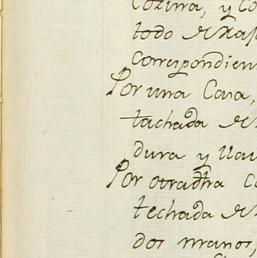 Cozina, y co
todo de
correspondien
Por una Casa,
tachada de
dura y llau
Por otra dha C
techada de
dos manos,